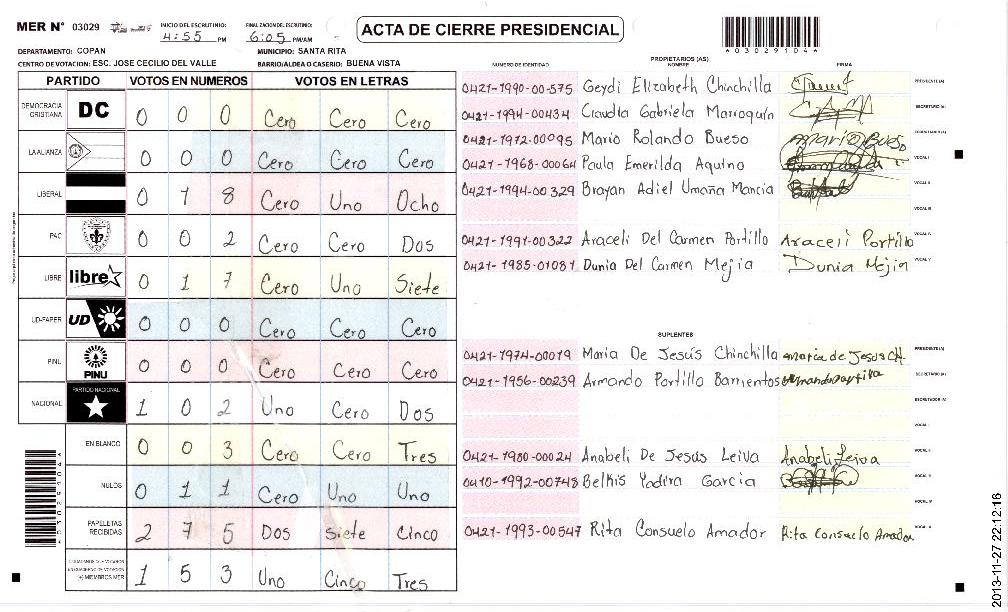 MER N° 03029
INICIO DEL ESCRUTINIO: 4:55 PM
FINALIZACION DEL ESCRUTINIO: 6:05 PM/AM
ACTA DE CIERRE PRESIDENCIAL
*030291044*
DEPARTAMENTO: COPAN MUNICIPIO: SANTA RITA
CENTRO DE VOTACION: ESC. JOSE CECILIO DEL VALLE BARRIO/ALDEA O CASERIO: BUENA VISTA
PARTIDO VOTOS EN NUMEROS VOTOS EN LETRAS
DEMOCRACIA CRISTIANA DC 0 0 0 Cero Cero Cero
LA ALIANZA 0 0 0 Cero Cero Cero
LIBERAL 0 1 8 Cero Uno Ocho
PAC 0 0 2 Cero Cero Dos
LIBRE libre 0 1 7 Cero Uno Siete
UD-FAPER UD 0 0 0 Cero Cero Cero
PINU PINU 0 0 0 Cero Cero Cero
NACIONAL PARTIDO NACIONAL 1 0 2 Uno Cero Dos
EN BLANCO 0 0 3 Cero Cero Tres
NULOS 0 1 1 Cero Uno Uno
PAPELETAS RECIBIDAS 2 7 5 Dos Siete Cinco
(+) MIEMBROS MER 1 5 3 Uno Cinco Tres
*030291044*
PROPIETARIOS (AS)
NUMERO DE IDENTIDAD NOMBRE FIRMA
0421-1990-00575 Geydi Elizabeth Chinchilla PRESIDENTE(A)
0421-1994-00434 Claudia Gabriela Marroquín SECRETARIO (A)
0421-1972-00095 Mario Rolando Bueso Mario Bueso
0421-1968-00064 Paula Emerilda Aquino VOCAL I
0421-1994-00329 Brayan Adiel Umaña Mancia VOCAL II
VOCAL III
0421-1991-00322 Araceli Del Carmen Portillo Araceli Portillo VOCAL IV
0421-1985-01081 Dunia Del Carmen Mejia Dunia Mejia VOCAL V
SUPLENTES
0421-1974-00019 Maria De Jesús Chinchilla Maria de Jesus CH. PRESIDENTE(A)
0421-1956-00239 Armando Portillo Barrientos Armando Portillo SECRETARIO (A)
ESCRUTADOR (A)
VOCAL I
0421-1980-00024 Anabeli De Jesús Leiva Anabeli Leiva VOCAL II
0410-1992-00748 Belkis Yadira Garcia VOCAL III
VOCAL IV
0421-1993-00547 Rita Consuelo Amador Rita Consuelo Amador VOCAL V
2013-11-27 22:12:16